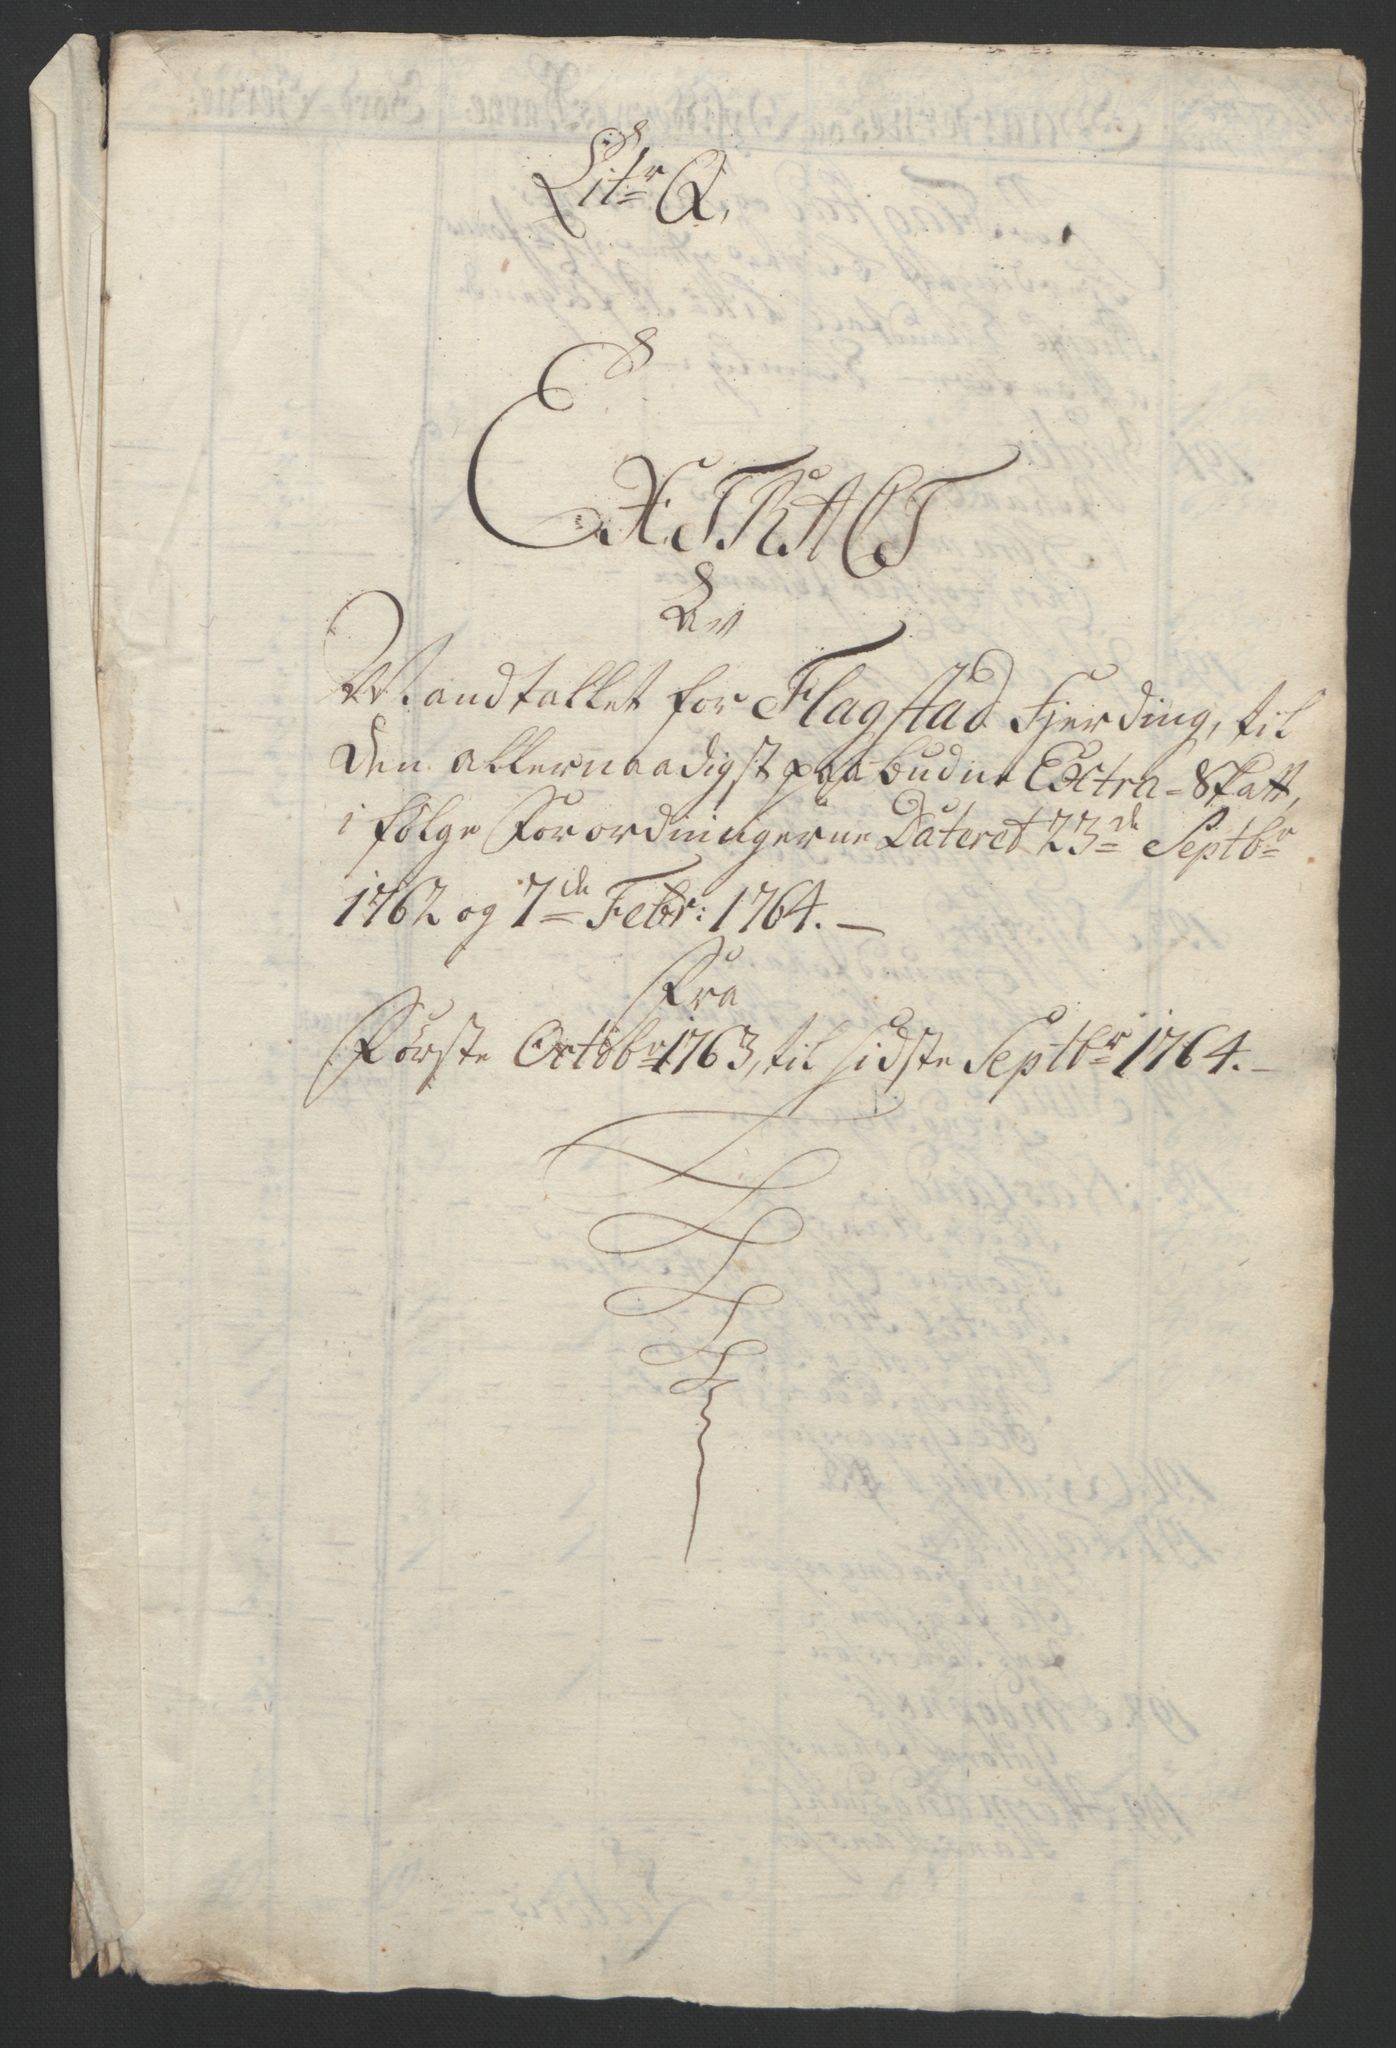 Litr Q,
EXTRACT
Av
Mandtallet for Flagstad Fjerding, til
den allernaadigst paabudne Extra-Skatt,
i følge Forordningerne Dateret 23de Septbr
1762 og 7de Febr: 1764. —
Fra
Første Octobr 1763, til sidste Septbr 1764. —